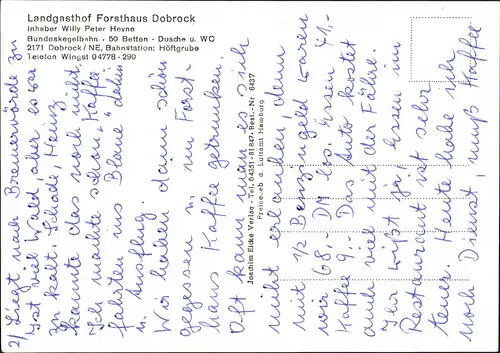 Landgasthof Forsthaus Dobrock
Inhaber Willy Peter Heyne
Bundeskegelbahn · 50 Betten · Dusche u. WC
2171 Dobrock/NE, Bahnstation: Höftgrube
Telefon Wingst 04778-290
2/ Liegt nach Bremervörde zu
Ist viel Wald aber es war
zu kalt. Schade, Heinz
kannte das noch nicht.
Ich machte schon Kaffee
fahrten ins Blaue " dahin
u. Ausflug.
Wir haben dann schön
gegessen u. im Forst-
haus Kaffee getrunken.
Oft kann man es sich
Joachim Eicke Verlag - Tel. 04351-81847 - Best.-Nr. 6437
Freigegeb. d. Luftamt Hamburg
nicht erlauben, denn
mit 12 Benzingeld waren
wir 68,- DM los. Essen 41,-
Kaffee 9.- Das Auto kostet
auch viel mit der Fähre.
Ihr wißt ja, Essen im
Restaurant ist sehr
teuer. Heute habe ich
noch Dienst, muß Kaffee